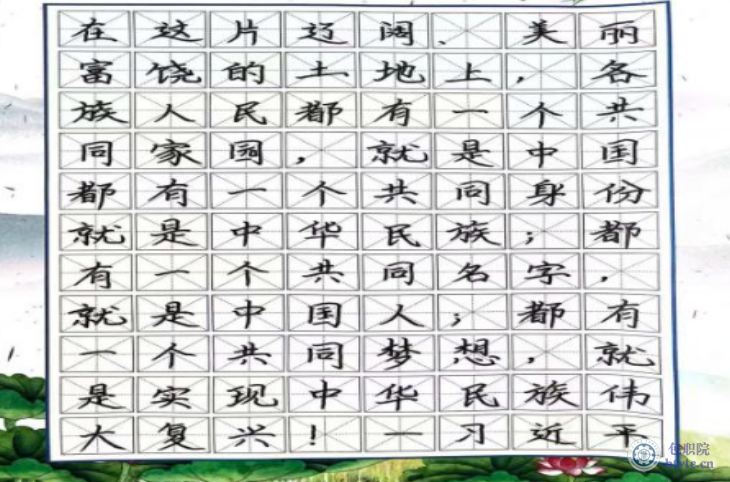 在这片辽阔、美丽
富饶的土地上，各
族人民都有一个共
同家园，就是中国
都有一个共同身份
就是中华民族；都
有一个共同名字，
就是中国人；都有
一个共同梦想，就
是实现中华民族伟
大复兴！一习近平
包职院